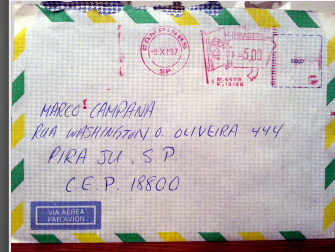 CAMPINAS
-9 X 197
SP
5,00
MARCO CAMPANA
RUA WASHINGTON O. OLIVEIRA 444
PIRA JU. S P.
C.E.P. 18800
VIA AÉREA
PAR AVION